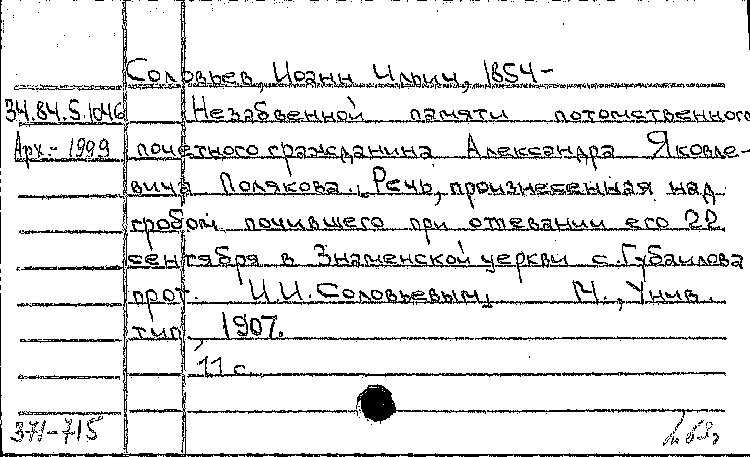 Соловьев, Иоанн Ильич, 1854-
34.84.5.1046 Незабвенной памяти потомственного
Арх.- 1999 почетного гражданина Александра Яковле-
вича Полякова. Речь, произнесенная над
гробом почившего при отпевании его 22
сентября в Знаменской церкви с. Губайлова
прот. И.И. Соловьевым. М., Унив.
тип., 1907.
11 с.
371-715